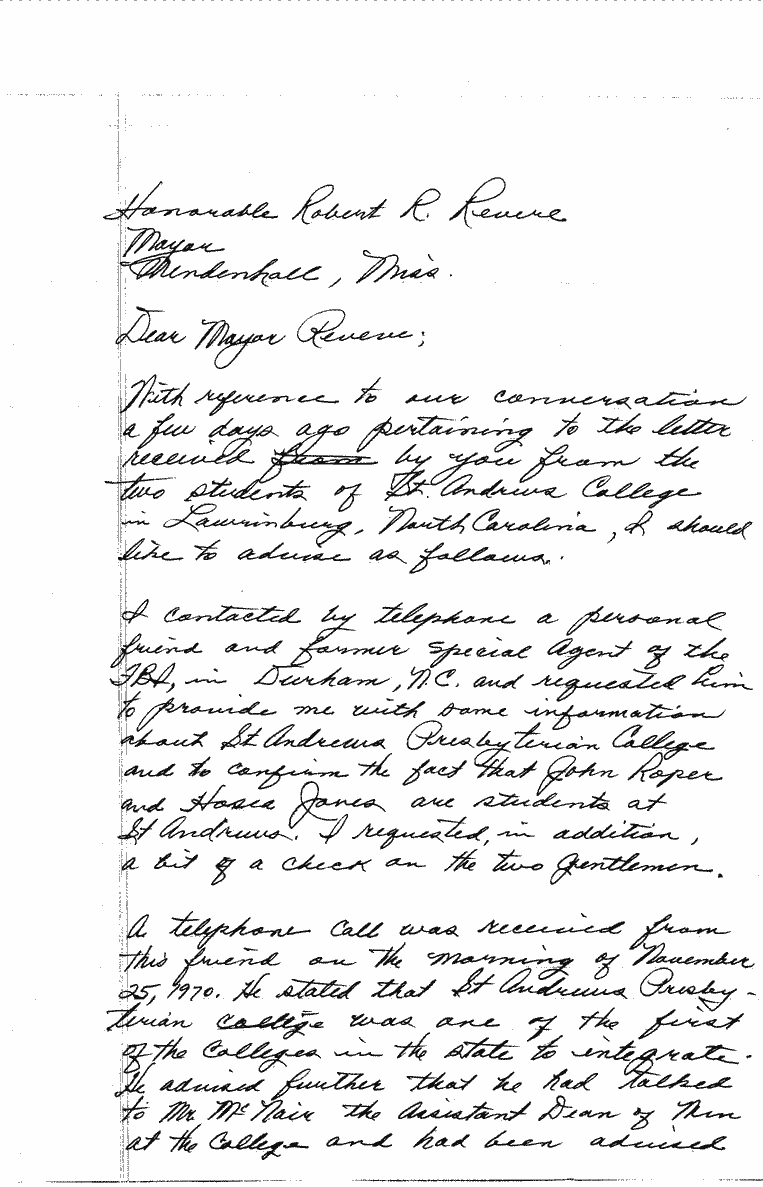 Honorable Robert R. Revere
Mayor
Mendenhall, Miss.
Dear Mayor Revere;
With reference to our conversation
a few days ago pertaining to the letter
received from by you from the
two students of St. Andrews College
in Laurinburg, North Carolina, I should
like to advise as follows.
I contacted by telephone a personal
friend and former Special Agent of the
FBI, in Durham, N.C. and requested him
to provide me with some information
about St Andrews Presbyterian College
and to confirm the fact that John Roper
and Hosea Jones are students at
St Andrews. I requested, in addition,
a bit of a check on the two gentlemen.
A telephone call was received from
this friend on the morning of November
25, 1970. He stated that St Andrews Presby-
terian college was one of the first
of the Colleges in the state to integrate.
He advised further that he had talked
to Mr. McNair the Assistant Dean of Men
at the College and had been advised